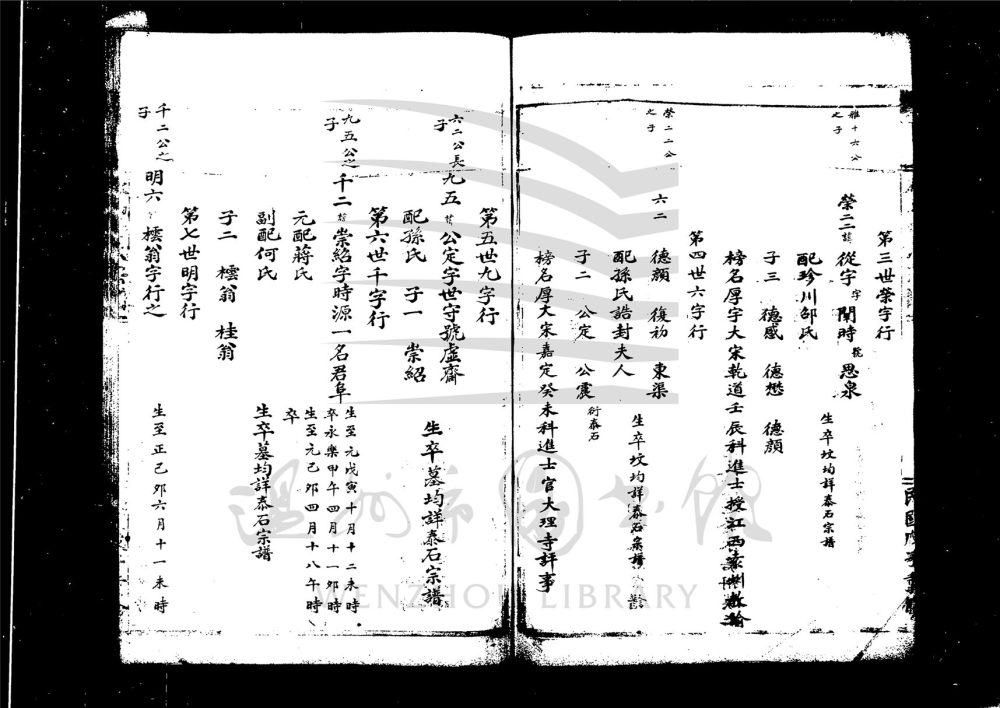 第三世榮字行
雅十六公
之子
榮二諱從字字聞時號思泉
生卒坟均詳泰石宗譜
配珍川邵氏
子三 德感 德懋 德顔
榜名厚字大宋乾道壬辰科進士授江西
第四世六字行
榮二二公
之子
六二 德顔 復初 東渠
生卒坟均詳泰石宗譜
配孫氏誥封夫人
子二 公定 公震衍泰石
榜名厚大宋嘉定癸未科進士官大理寺評事
第五世九字行
六二公長
子
九五諱公定字世守號虛齋
生卒墓均詳泰石宗譜
配孫氏 子一 崇紹
第六世千字行
九五公之
子
千二諱崇紹字時源一名君阜
生至元戊寅十月十二未時
卒永樂甲午四月十一卯時
元配蔣氏
生至元己卯四月十八午時
卒
副配何氏
生卒墓均詳泰石宗譜
子二 橒翁 桂翁
第七世明字行
千二公之
子
明六 橒翁字行之
生至正己卯六月十一未時
溫州市图书馆
WENZHOU LIBRARY